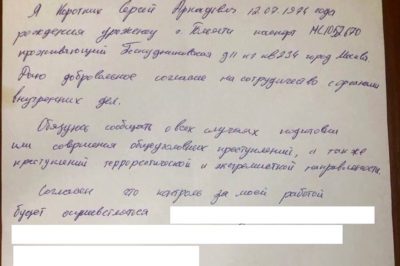 Я Коротких Сергей Аркадьевич 12.07.1974 года
рождения уроженец г. паспорт
проживающий п11 кв 234 город Москва
Даю добровольное согласие на сотрудничество с органами
внутренних дел.
Обязуюсь сообщать о всех случаях подготовки
или совершения общеуголовных преступлений, а также
преступлений террористической и экстремистской направленности.
Согласен что контроль за моей работой
будет осуществляться